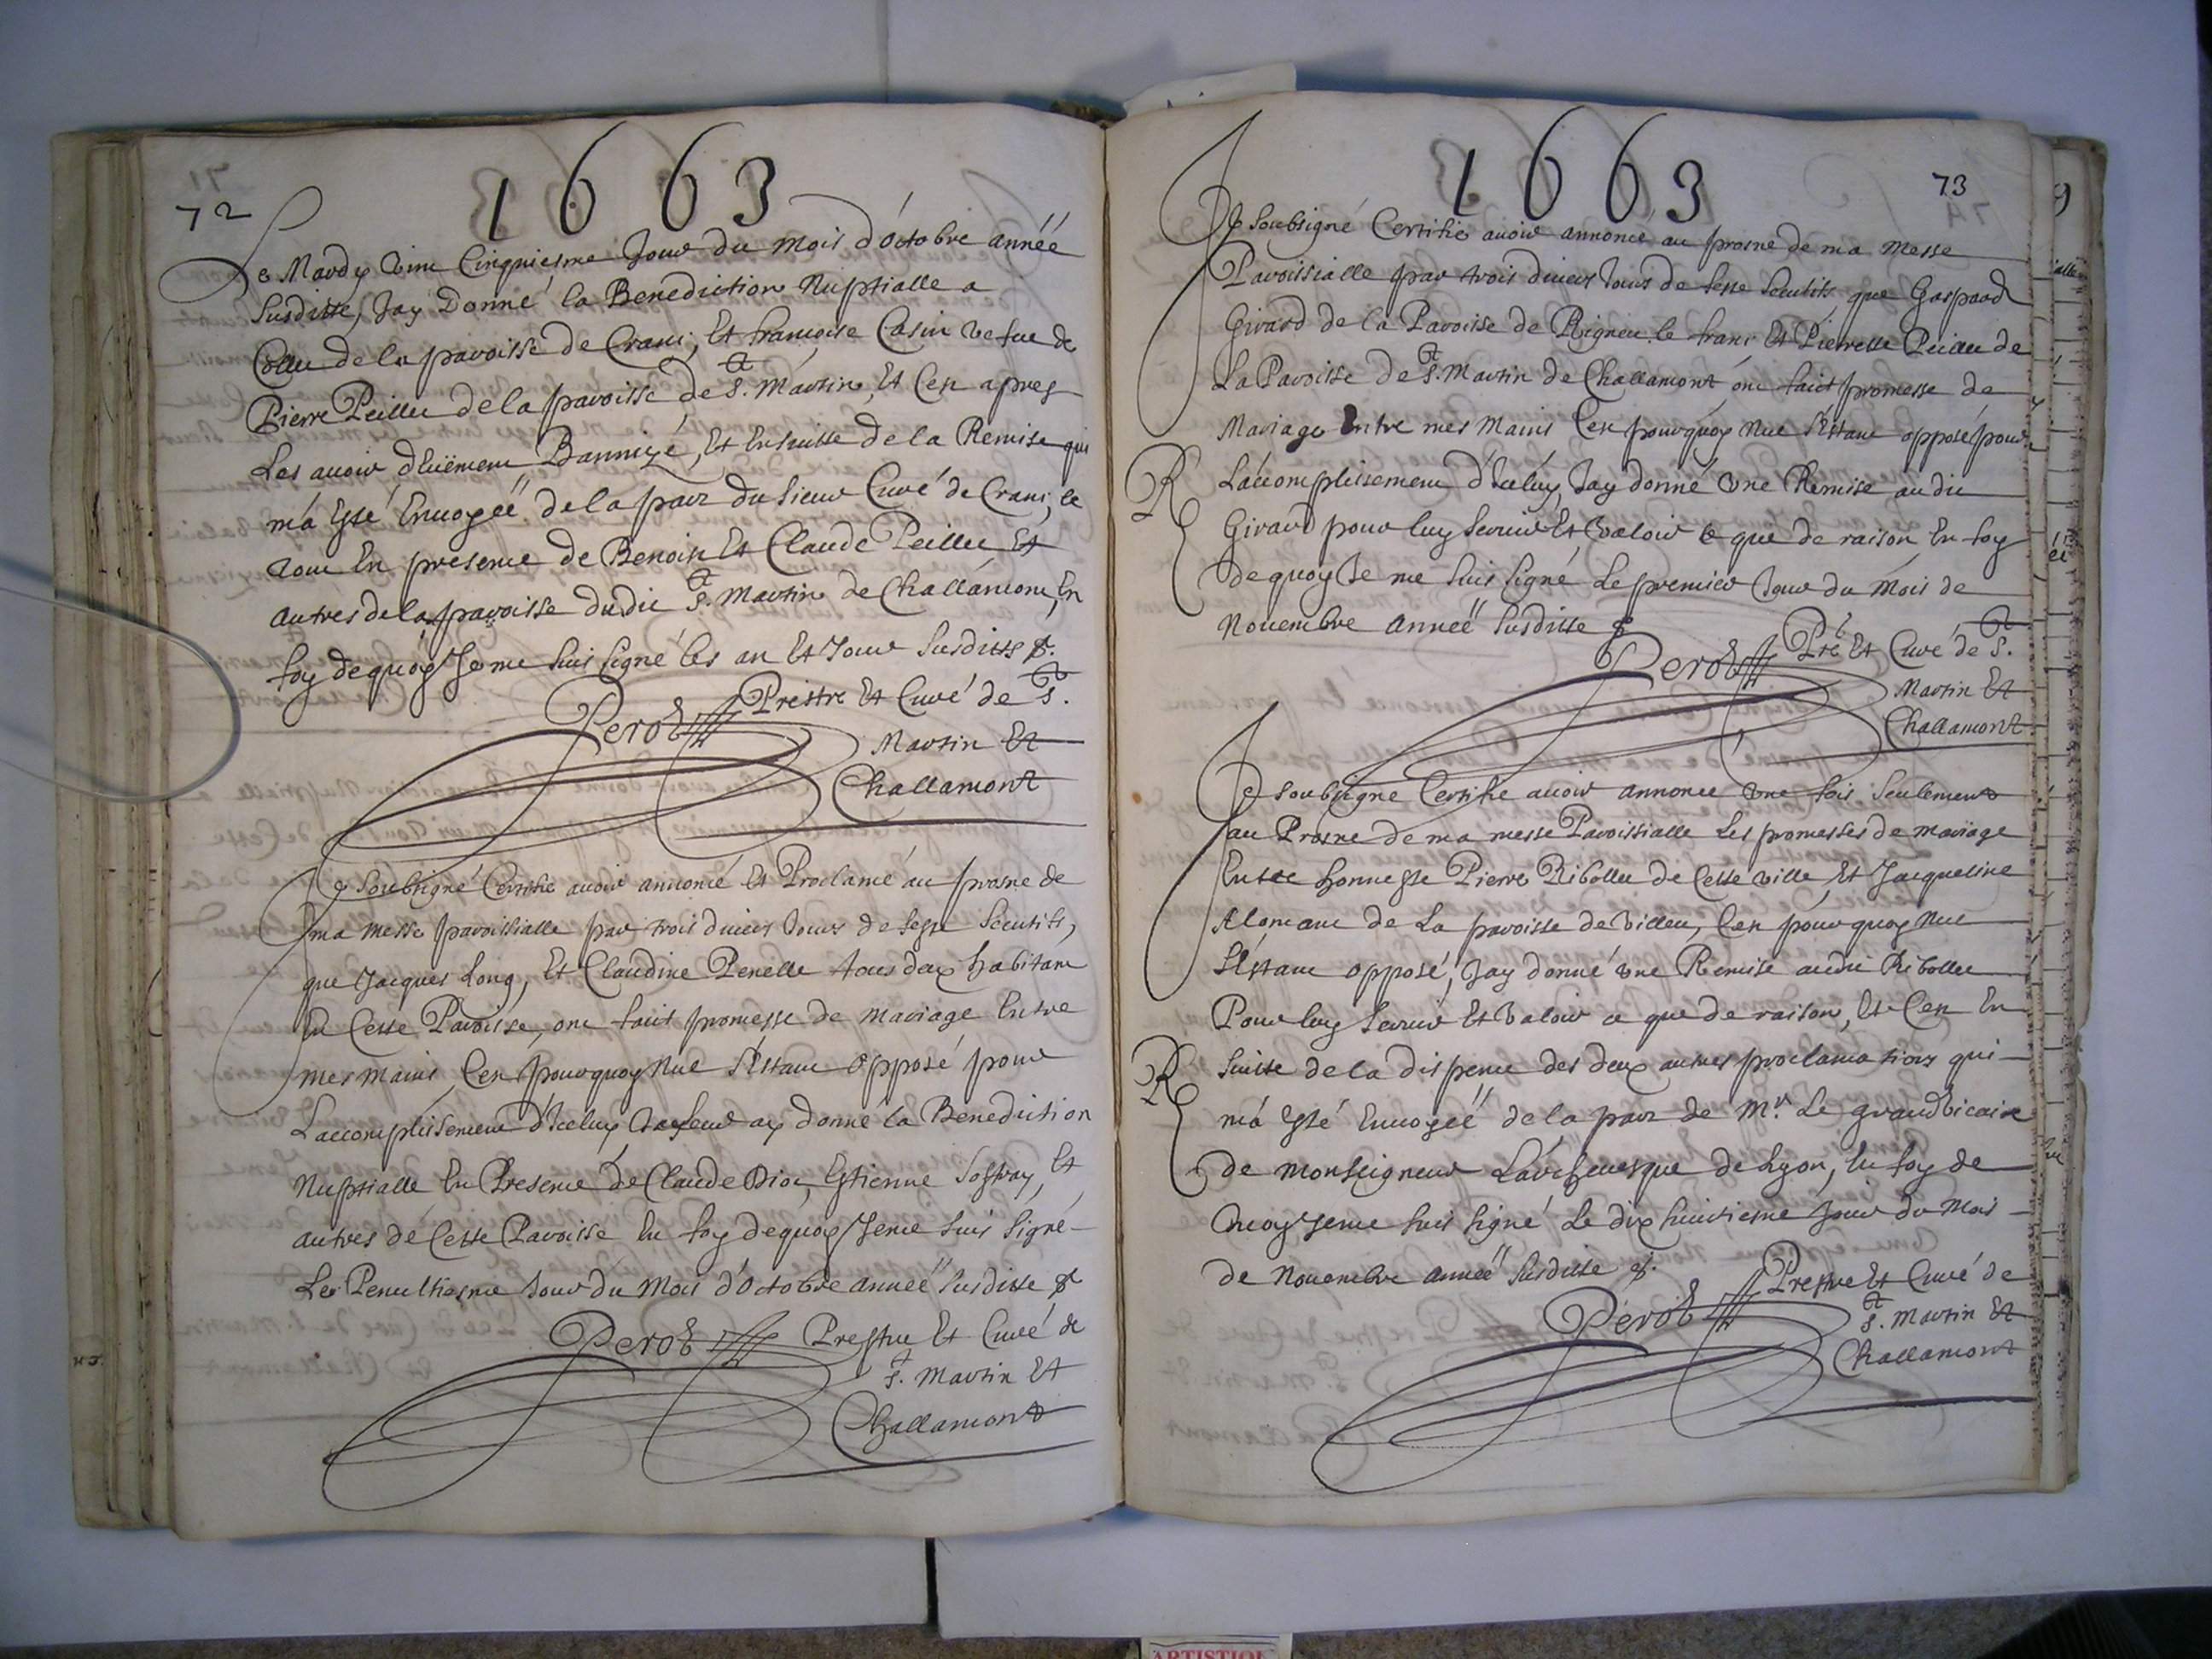 1663
72
Le Mardy vint Cinquiesme Jour du mois d'octobre annéé
Susditte, Jay Donné la Benediction Nuptialle a
de la paroisse de Crans, Et françoise Casin vefue de
Pierre Peilleu de la paroisse de St. Martin, Et Cen apres
Les auoir dhuëment Bannizé, Et Ensuitte de la Remise qui
m'a Esté Enuoyéé de la part du Sieur Curé de Crans, le
tout En presence de Benoist Et Claude Peilleu Et
autres de la paroisse dudit St. Martin de Challamont, En
foy dequoy Je me suis signé les an Et Jour susditts
Perot Prestre Et Curé de St.
Martin Et
Challamont
Je Soubsigné Certifie auoir annoncé Et Proclamé au prosne de
ma messe paroissialle par trois diuers Jours de feste Secutifs,
que Jacques Long, Et Claudine Penelle tous deux habitant
En Cette Paroisse, ont faict promesse de mariage Entre
mes mains, Cen pourquoy Nul S'Estant opposé pour
L'accomplissement d'Iceluy, Ja Leur ay donné la Benediction
Nuptialle En Presence de Claude Dioc, Estienne Soffray, Et
autres de Cette Paroisse En foy dequoy Je me suis signé
Le Penultiesme Jour du Mois d'Octobre annéé Susditte
Perot Prestre Et Curé de
St. Martin Et
Challamont
1663
73
Je Soubsigné Certifie auoir annoncé au prosne de ma Messe
Paroissialle par trois diuers Jours de feste Secutifs, que Gaspard
Girard de la Paroisse de Rigneu le franc Et Pierrette Peilleu de
La Paroisse de St. Martin de Challamont ont faict promesse de
Mariage Entre mes Mains Cen pourquoy Nul S'Estant opposé pour
L'accomplissement d'Iceluy, Jay donné Vne Remise audit
R
Girard pour luy Seruir Et Valoir ce que de raison En foy
dequoy Je me suis signé Le premier Jour du Mois de
Nouembre Annéé Susditte
Perot Ptre Et Curé de St.
Martin Et
Challamont
Je soubsigné Certifie auoir annoncé Vne fois Seulement
au Prosne de ma messe Paroissialle Les promesses de mariage
Entre honneste Pierre Ribollet de Cette Ville Et Jacqueline
Alomant de La paroisse de Villeu, Cen pourquoy Nul
S'Estant opposé, Jay donné Vne Remise audit Ribollet
Pour luy Seruir Et Valoir ce que de raison, Et Cen En
R
Suitte de la dispence des deux autres proclamations qui
m'a Esté Enuoyéé de la part de Mr. Le grand Vicaire
de Monseigneur L'archeuesque de Lyon, En foy de
Quoy Je me suis signé Le dix huictiesme Jour du Mois
de Nouembre Annéé Susditte
Perot Prestre Et Curé de
St. Martin Et
Challamont